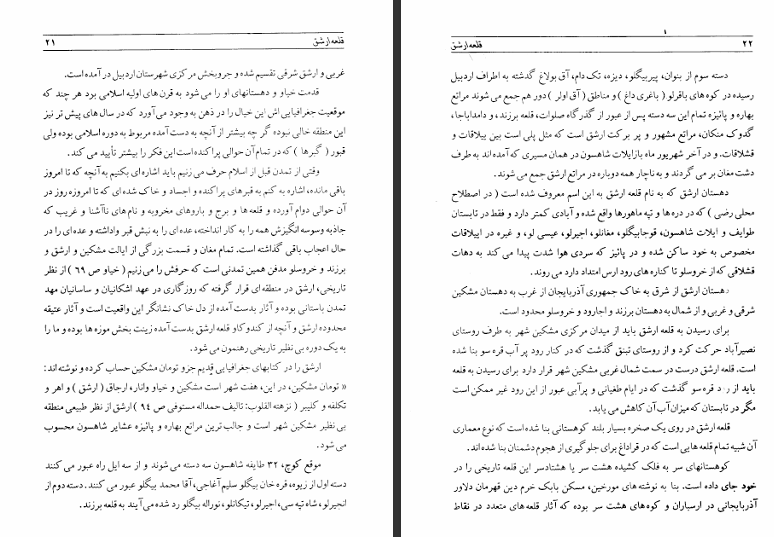 قلعه ارشق ۲۱
غربی و ارشق شرقی تقسیم شده و جزوبخش مرکزی شهرستان اردبیل در آمده است.
قدمت خیاو و دهستانهای او را می شود به قرن های اولیه اسلامی بود هر چند که
موقعیت جغرافیایی اش این خیال را در ذهن به وجود می آورد که در سال های پیش تر نیز
این منطقه خالی نبوده گر چه بیشتر از آنچه به دست آمده مربوط به دوره اسلامی بوده ولی
قبور ( گبرها ) که در تمام آن حوالی پراکنده است این فکر را بیشتر تأیید می کند.
وقتی از تمدن قبل از اسلام حرف می زنیم باید اشاره ای بکنیم به آنچه که تا امروز
باقی مانده، اشاره به کنم به قبرهای پراکنده و اجساد و خاک شده ای که تا امروزه روز در
آن حوالی دوام آورده و قلعه ها و برج و باروهای مخروبه و نام های ناآشنا و غریب که
جاذبه وسوسه انگیزش همه را به کار انداخته، عده ای را به نبش قبر واداشته و عده ای را در
حال اعجاب باقی گذاشته است. تمام مغان و قسمت بزرگی از ایالت مشکین و ارشق و
برزند و خروسلو مدفن همین تمدنی است که حرفش را می زنیم ( خیاو ص ۶۹ ) از نظر
تاریخی، ارشق در منطقه ای قرار گرفته که روزگاری در عهد اشکانیان و ساسانیان مهد
تمدن باستانی بوده و آثار بدست آمده از دل خاک نشانگر این واقعیت است و آثار عتیقه
محدوده ارشق و آنچه از کندوکاو قلعه ارشق بدست آمده زینت بخش موزه ها بوده و ما را
به یک دوره بی نظیر تاریخی رهنمون می شود.
ارشق را در کتابهای جغرافیایی قدیم جزو تومان مشکین حساب کرده و نوشته اند:
« تومان مشکین، در این، هفت شهر است مشکین و خیاو واناره ارجاق ( ارشق ) و اهر و
تکلفه و کلیبر ( نزهته القلوب: تالیف حمداله مستوفی ص ۹۴ ) ارشق از نظر طبیعی منطقه
بی نظیر مشکین شهر است و جالب ترین مراتع بهاره و پائیزه عشایر شاهسون محسوب
می شود.
موقع کوچ، ۳۲ طایفه شاهسون سه دسته می شوند و از سه ایل راه عبور می کنند
دسته اول از زیوه، قره خان بیگلو سلیم آغاجی، آقا محمد بیگلو عبور می کنند. دسته دوم از
انجیرلو، شاه تپه سی، اجیرلو، تیکانلو، نوراله بیگلو رد شده می آیند به قلعه برزند.
۲۲ قلعه ارشق
دسته سوم از بنوان، پیربیگلو، دیزه، تک دام، آق بولاغ گذشته به اطراف اردبیل
رسیده در کوه های باقرلو ( باغری داغ ) و مناطق ( آق اولر ) دور هم جمع می شوند مراتع
بهاره و پائیزه تمام این سه دسته پس از عبور از گذرگاه صلوات، قلعه برزند، و داماداباجا،
گدوک منکان، مراتع مشهور و پر برکت ارشق است که مثل پلی است بین ییلاقات و
قشلاقات. و در آخر شهریور ماه بازایلات شاهسون در همان مسیری که آمده اند به طرف
دشت مغان بر می گردند و به ناچار همه دوباره در مراتع ارشق جمع می شوند.
دهستان ارشق که به نام قلعه ارشق به این اسم معروف شده است ( در اصطلاح
محلی رضی ) که در دره ها و تپه ماهورها واقع شده و آبادی کمتر دارد و فقط در تابستان
طوایف و ایلات شاهسون، قوجابیگلو، مغانلو، اجیرلو، عیسی لو، و غیره در ایلاقات
مخصوص به خود ساکن شده و در پائیز که سردی هوا شدت پیدا می کند به دهات
قشلاقی که از خروسلو تا کناره های رود ارس امتداد دارد می روند.
دهستان ارشق از شرق به خاک جمهوری آذربایجان از غرب به دهستان مشکین
شرقی و غربی و از شمال به دهستان برزند و اجارود و خروسلو محدود است.
برای رسیدن به قلعه ارشق باید از میدان مرکزی مشکین شهر به طرف روستای
نصیرآباد حرکت کرد و از روستای تبنق گذشت که در کنار رود پر آب قره سو بنا شده
است. قلعه ارشق درست در سمت شمال غربی مشکین شهر قرار دارد برای رسیدن به قلعه
باید از رود قره سو گذشت که در ایام طغیانی و پرآبی عبور از این رود غیر ممکن است
مگر در تابستان که میزان آب آن کاهش می یابد.
قلعه ارشق در روی یک صخره بسیار بلند کوهستانی بنا شده است که نوع معماری
آن شبیه تمام قلعه هایی است که در قراداغ برای جلوگیری از هجوم دشمنان بنا شده اند.
کوهستانهای سر به فلک کشیده هشت سر یا هشتادسر این قلعه تاریخی را در
خود جای داده است. بنا به نوشته های مورخین، مسکن بابک خرم دین قهرمان دلاور
آذربایجانی در ارسباران و کوه های هشت سر بوده که آثار قلعه های متعدد در نقاط